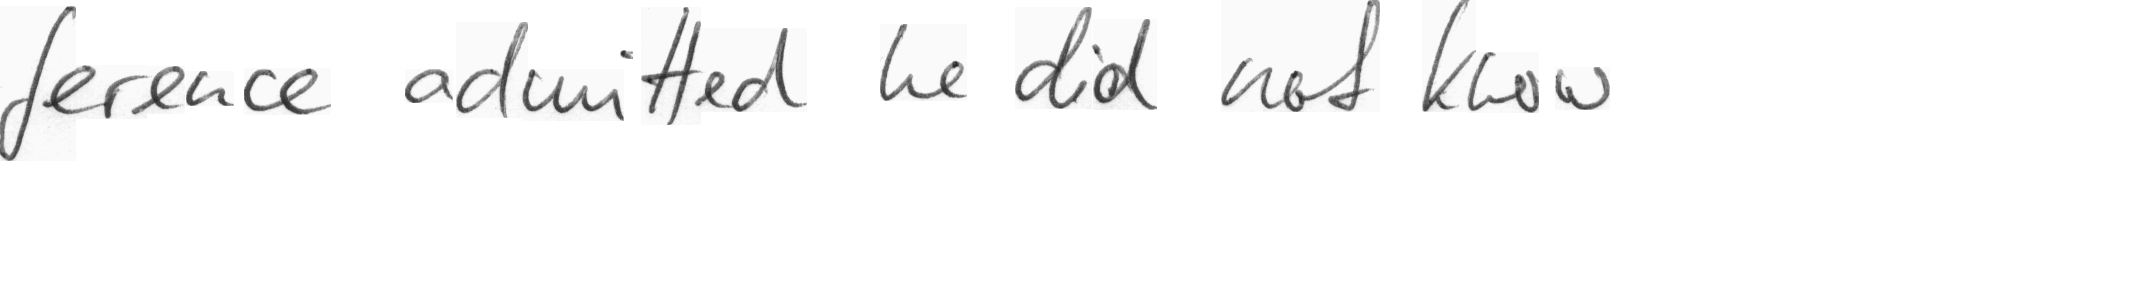 ference admitted he did not know